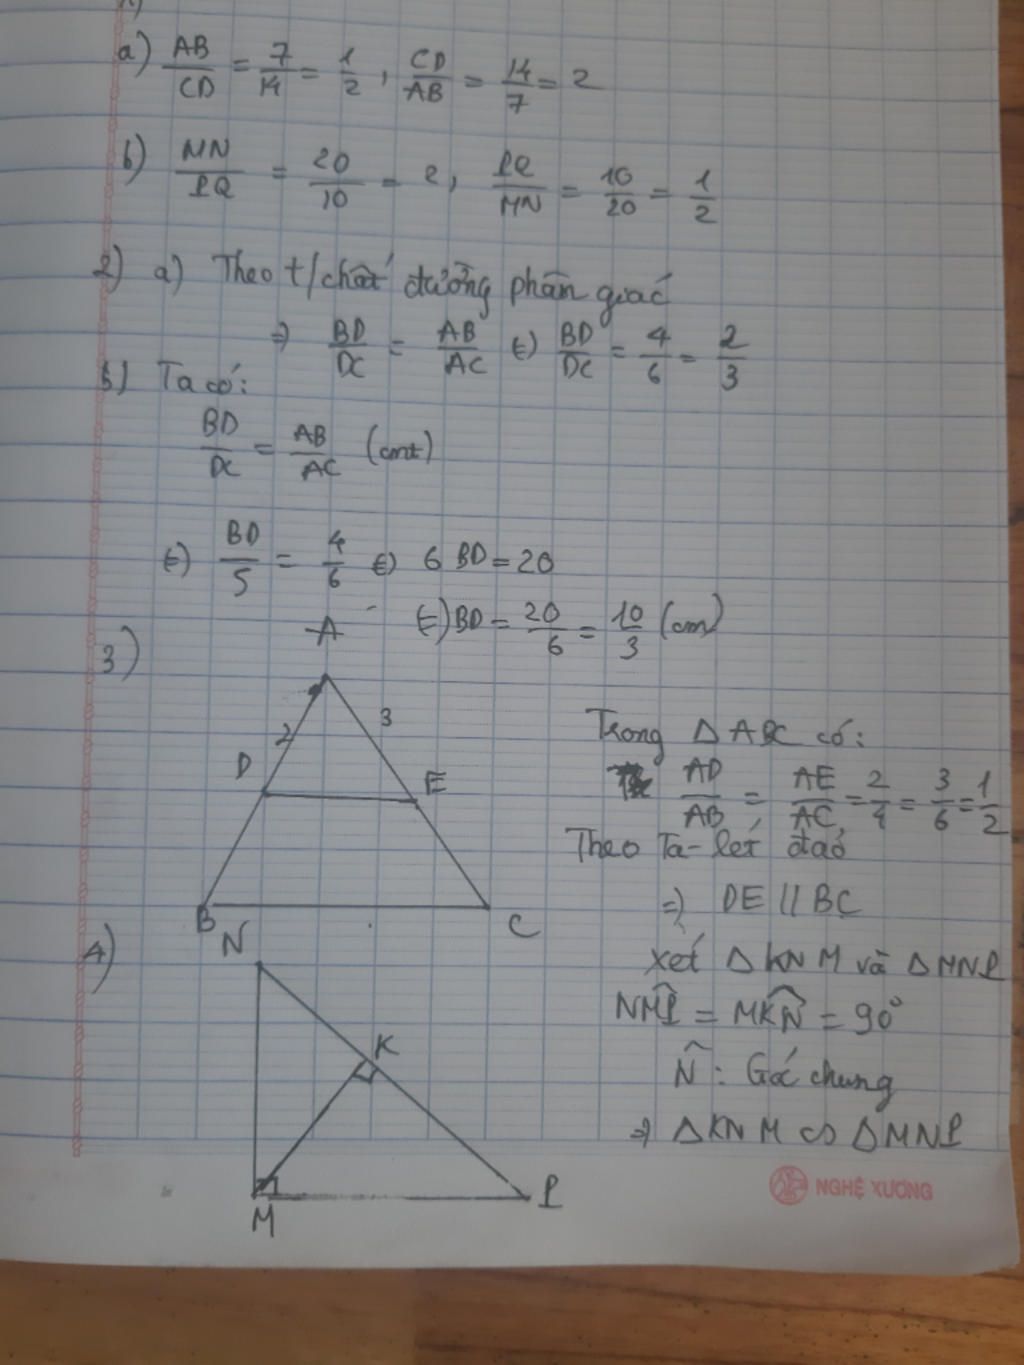 a) AB/CD = 7/14 = 1/2 , CD/AB = 14/7 = 2
b) MN/PQ = 20/10 = 2, PQ/MN = 10/20 = 1/2
2) a) Theo t/chất đường phân giác
⇒ BD/DC = AB/AC ⇔ BD/DC = 4/6 = 2/3
b) Ta có:
BD/DC = AB/AC (cmt)
⇔ BD/5 = 4/6 ⇔ 6 BD = 20
⇔ BD = 20/6 = 10/3 (cm)
3)
A
2
3
D
E
B
C
Trong Δ ABC có:
AD/AB = AE/AC = 2/4 = 3/6 = 1/2
Theo Ta-lét đảo
⇒ DE // BC
4)
N
K
M
P
Xét Δ KNM và Δ MNP
NMP̂ = MKN̂ = 90°
N̂ : Góc chung
⇒ Δ KNM ∽ Δ MNP
NGHỆ XƯƠNG